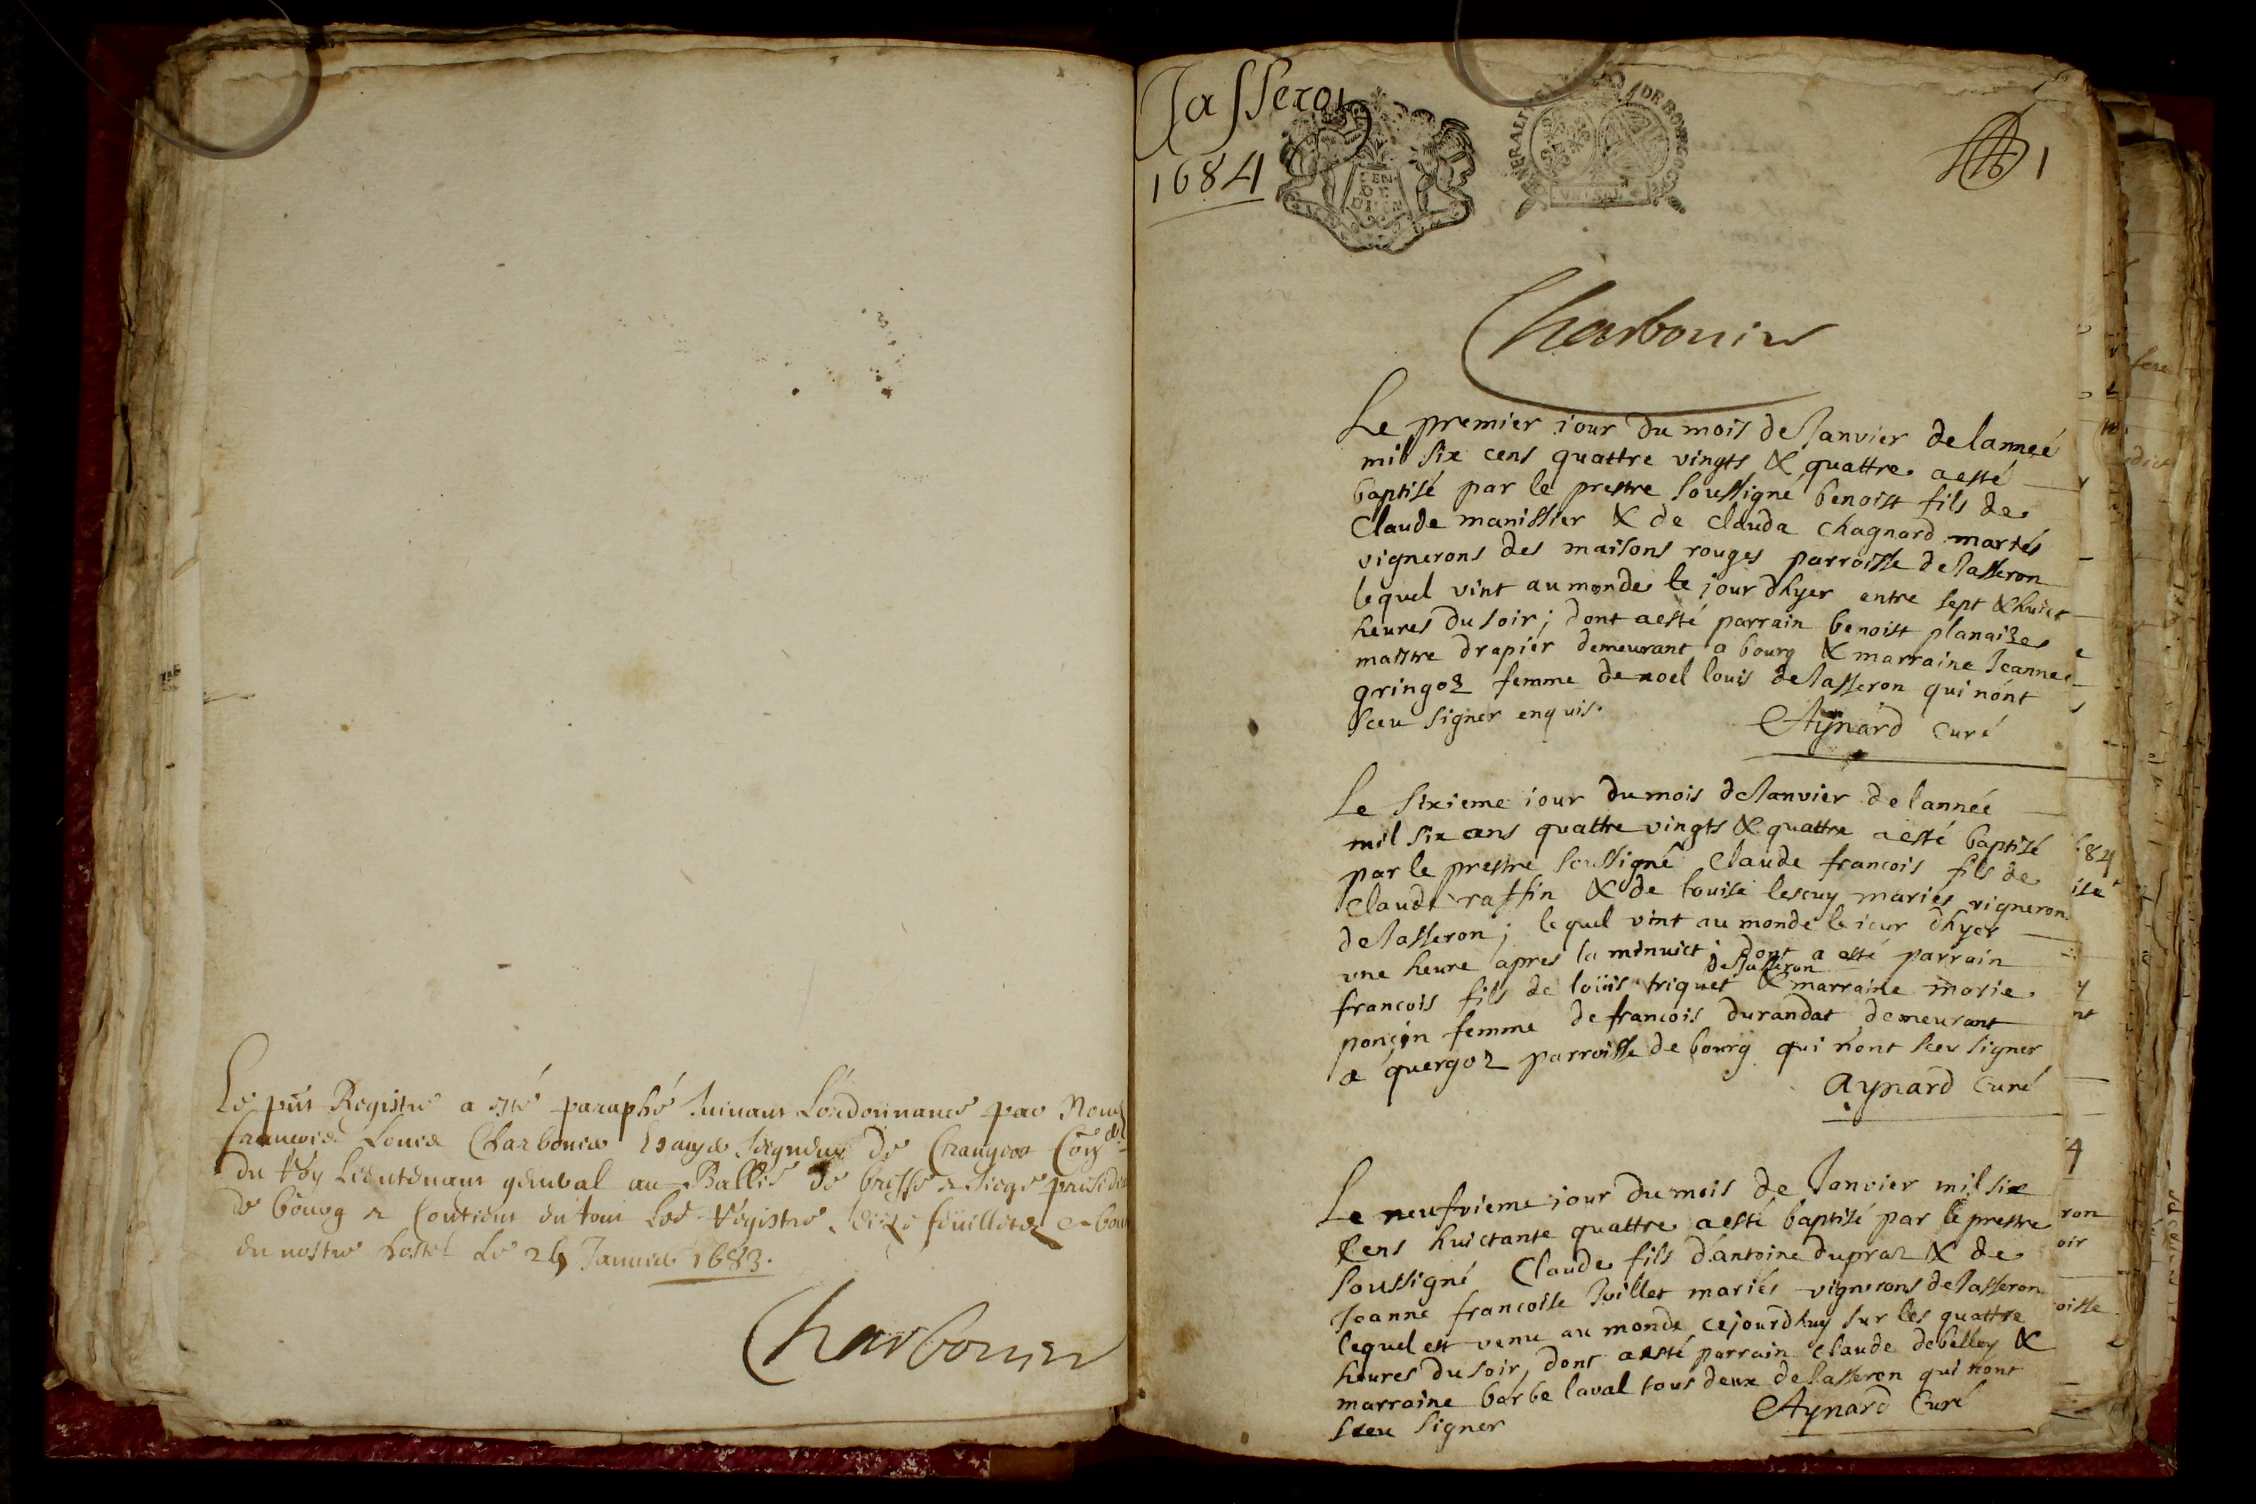 Le pnt Registre a esté paraphé suivant Lordonnance par Nous
Francois Louis Charbonier Seigneur de Crangeac Conr
du Roy Lieutenant general au Balliage de bresse & siege presidial
de bourg & Contient en tout Led Registre seize feuilletz a bourg
en nostre hostel Le 24 Janvier 1683.
Charbonier
Jasseron
1684
GEN
DE
DIION
GENERALITE DE BOVRGOGNE
1
Charbonier
Le premier iour du mois de Janvier de lanneé
mil six cens quattre vingts & quattre a esté
baptisé par le prestre soussigné benoist fils de
Claude manissier & de clauda chagnard mariés
vignerons des maisons rouges parroisse de Jasseron
lequel vint au monde le jour dhyer entre sept & huict
heures du soir; dont a esté parrain benoist planaize
maistre drapier demeurant a bourg & marraine Jeanne
gringoz femme de noel louis de Jasseron qui nont
sceu signer enquis.
Aynard curé
Le sixieme iour du mois de Janvier de lannée
mil six cens quattre vingts & quattre a esté baptisé
par le prestre soussigné Claude francois fils de
Claude raffin & de louise lescuy mariés vigneron
de Jasseron; lequel vint au monde le iour dhyer
une heure apres la minuict; dont a esté parrain
de Jasseron
francois fils de loüis triquet & marraine marie
ponçin femme de francois durandat demeurant
a quergoz parroisse de bourg qui nont sceu signer
aynard curé
Le neufvieme iour du mois de Janvier mil six
Cens huictante quattre a esté baptisé par le prestre
soussigné Claude fils dantoine dupraz & de
Jeanne francoise Juillet mariés vignerons de Jasseron
lequel est venu au monde cejourdhuy sur les quattre
heures du soir, dont a esté parrain claude debelley &
marraine barbe laval tous deux de Jasseron qui nont
sceu signer
Aynard Curé